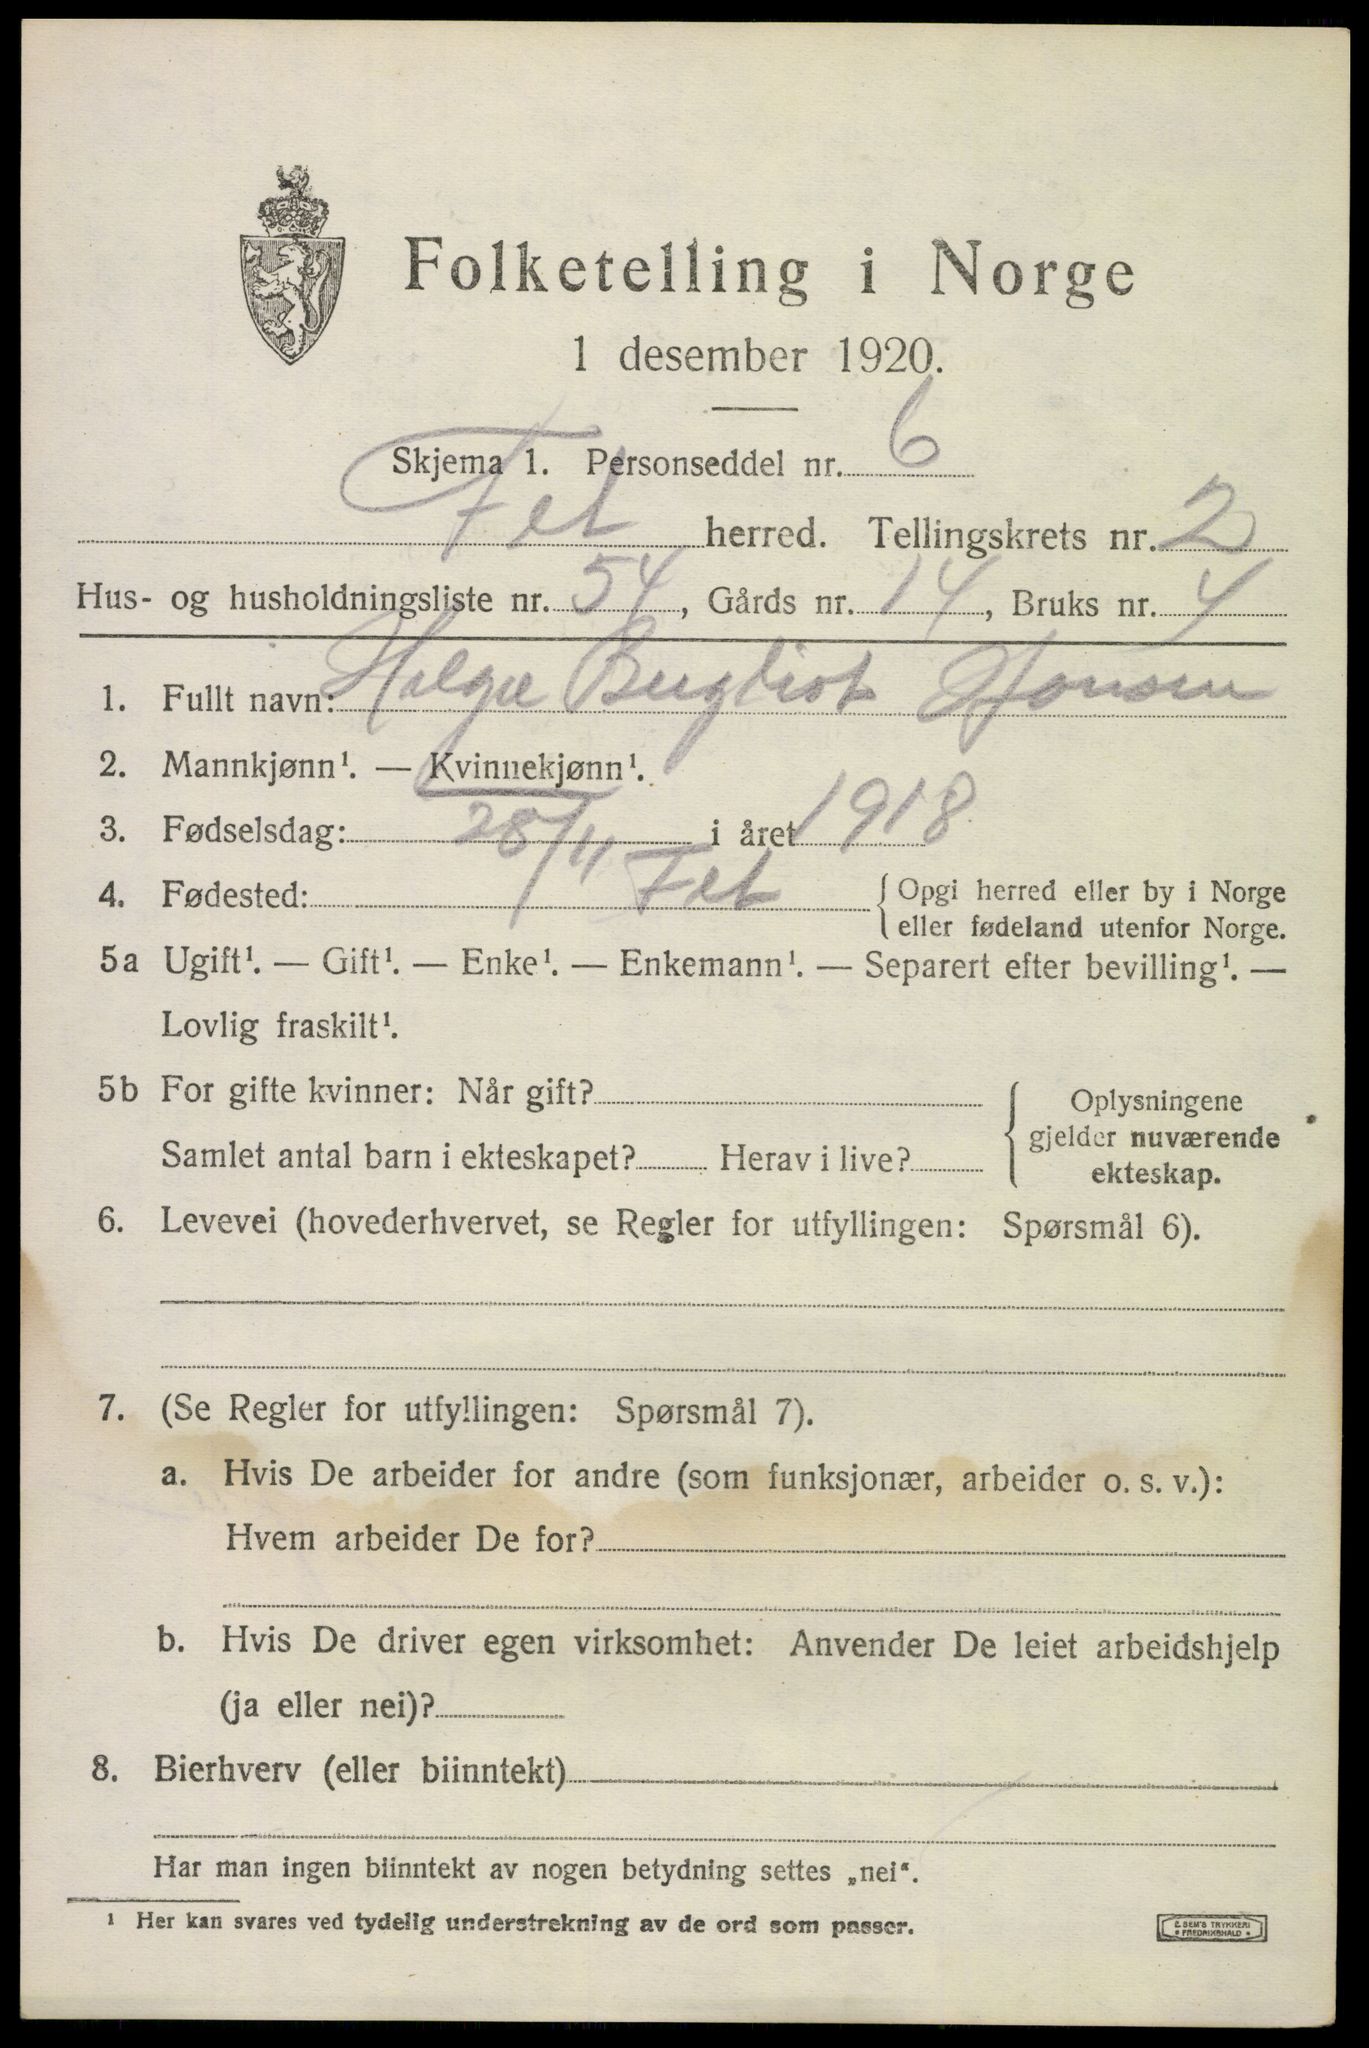 Folketelling i Norge
1 desember 1920.
Skjema 1. Personseddel nr. 6
Fet herred. Tellingskrets nr. 2
Hus- og husholdningsliste nr. 54, Gårds nr. 14, Bruks nr. 4
1. Fullt navn: Helga Bergliot Jonsen
2. Mannkjønn¹. — Kvinnekjønn¹.
3. Fødselsdag: 28/11 i året 1918
4. Fødested: Fet { Opgi herred eller by i Norge
eller fødeland utenfor Norge.
5a Ugift¹. — Gift¹. — Enke¹. — Enkemann¹. — Separert efter bevilling¹. —
Lovlig fraskilt¹.
5b For gifte kvinner: Når gift?
Samlet antal barn i ekteskapet? Herav i live?
Oplysningene
gjelder nuværende
ekteskap.
6. Levevei (hovederhvervet, se Regler for utfyllingen: Spørsmål 6).
7. (Se Regler for utfyllingen: Spørsmål 7).
a. Hvis De arbeider for andre (som funksjonær, arbeider o. s. v.):
Hvem arbeider De for?
b. Hvis De driver egen virksomhet: Anvender De leiet arbeidshjelp
(ja eller nei)?
8. Bierhverv (eller biinntekt)
Har man ingen biinntekt av nogen betydning settes „nei“.
¹ Her kan svares ved tydelig understrekning av de ord som passer.
E. SEM'S TRYKKERI
FREDRIKSHALD